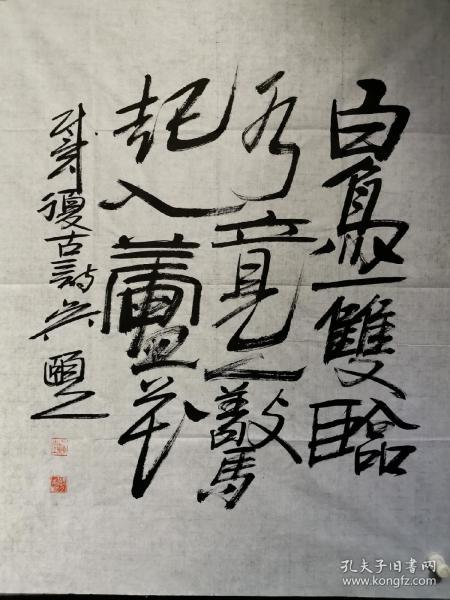 白鳥一雙臨
水立見人驚
起入蘆花
戴復古詩 吴頤人
孔夫子旧书网
www.kongfz.com